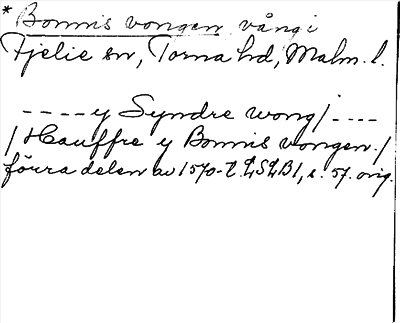 * Bonnis vongen vång i
Fjelie sn, Torna hd, Malm. l.
---- y Syndre wong / ----
/ Hauffre y Bonnis vongen. /
förra delen av 1570-t. LSLB1, s. 57. orig.